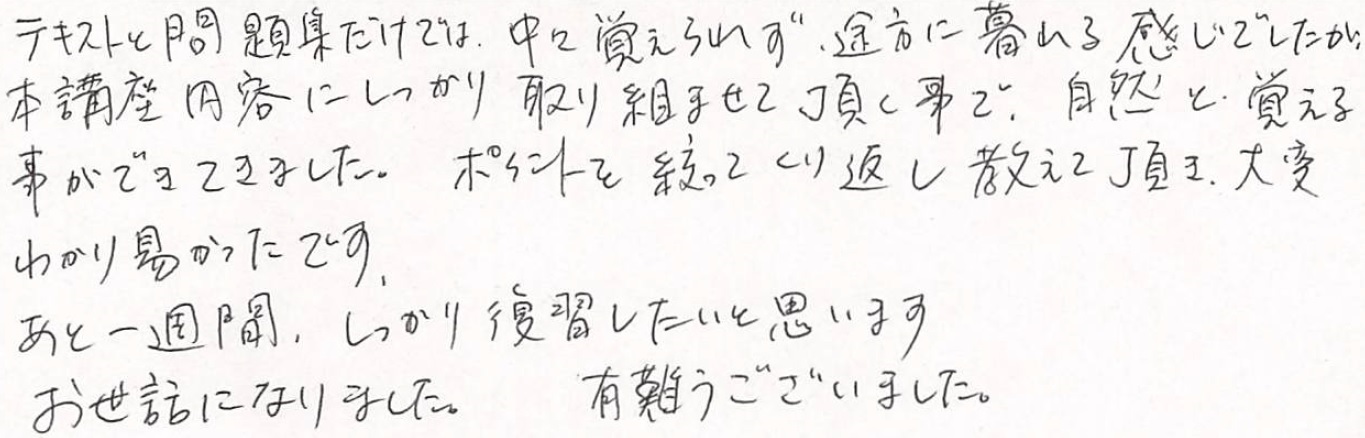 テキストと問題集だけでは、中々覚えられず、途方に暮れる感じでしたが、
本講座内容にしっかり取り組ませて頂く事で、自然と覚える
事ができてきました。 ポイントを絞ってくり返し教えて頂き、大変
わかり易かったです。
あと一週間、しっかり復習したいと思います
お世話になりました。 有難うございました。